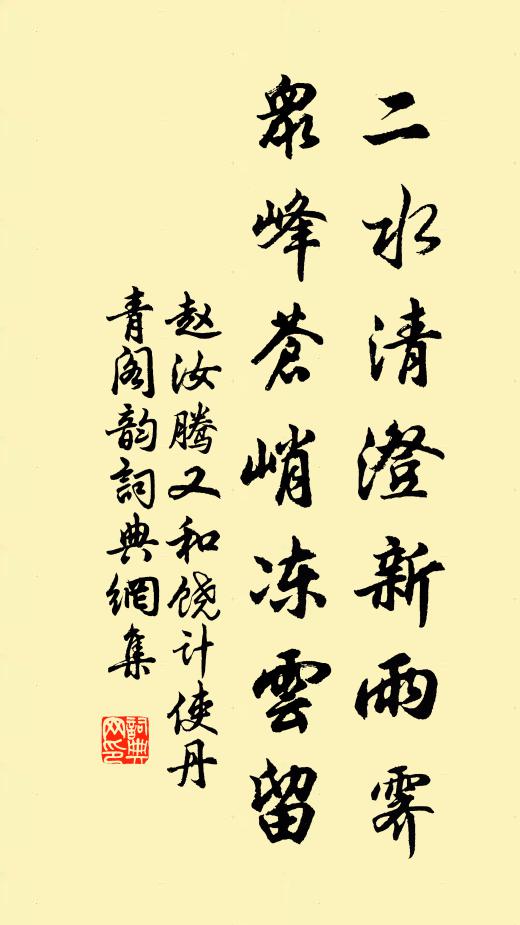 二水清澄新雨霁
眾峰蒼峭冻雲留
赵汝腾又和饶计使丹
青阁韵詞典網集
詞典
网印